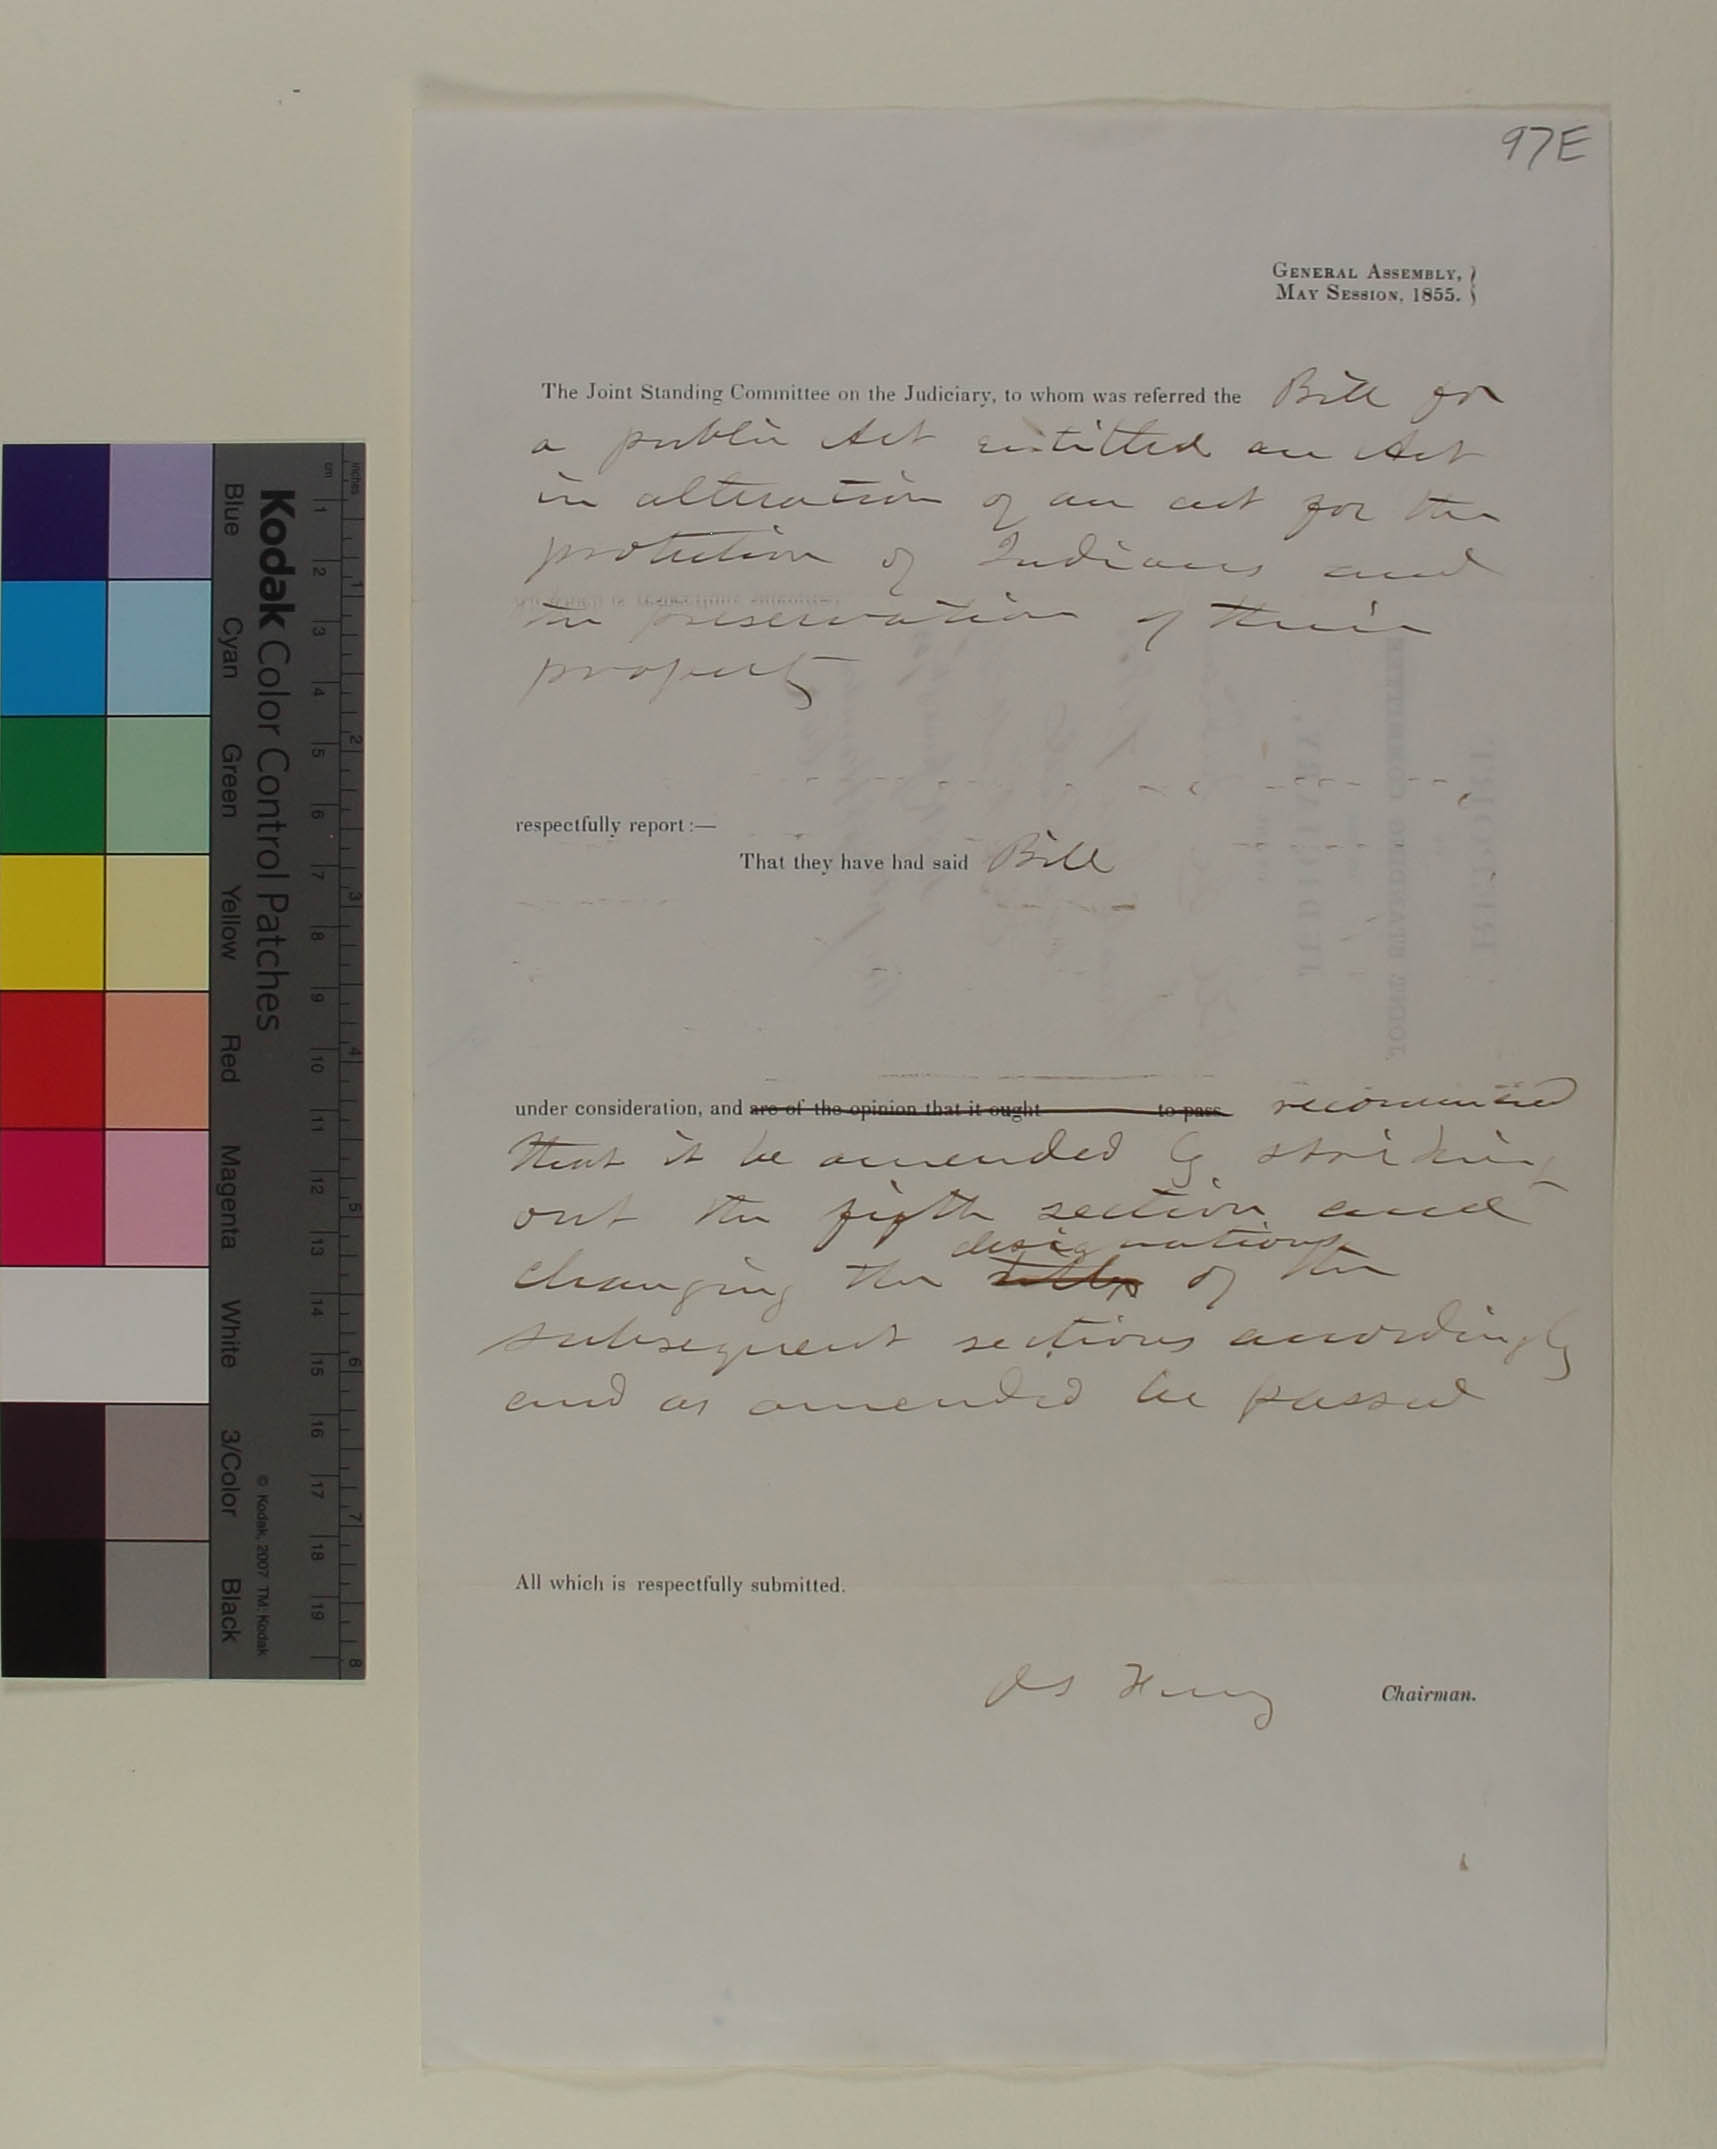 97E
GENERAL ASSEMBLY,
MAY SESSION, 1855.
The Joint Standing Committee on the Judiciary, to whom was referred the Bill for
a public Act entitled an Act
in alteration of an act for the
protection of Indians and
the preservation of their
property
respectfully report :—
That they have had said Bill
under consideration, and are of the opinion that it ought to pass recommend
that it be amended by striking
out the fifth section and
designations
changing the of the
subsequent sections accordingly
and as amended be passed
All which is respectfully submitted.
Chairman.
Kodak Color Control Patches
Blue Cyan Green Yellow Red Magenta White 3/Color Black
© Kodak, 2007 TM: Kodak
cm 1 2 3 4 5 6 7 8 9 10 11 12 13 14 15 16 17 18 19
inches 1 2 3 4 5 6 7 8